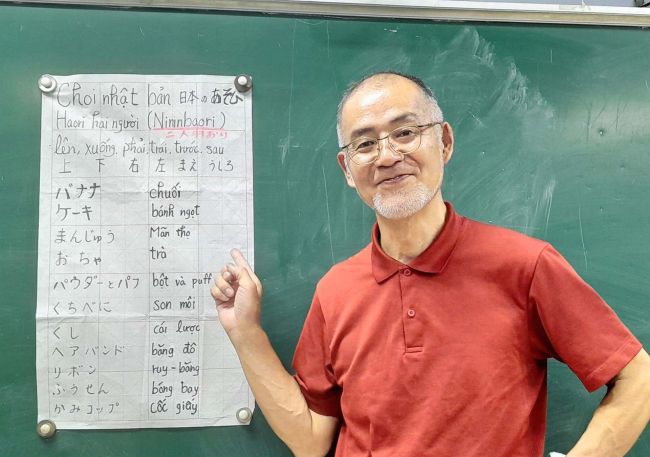 Chơi nhật bản 日本のあそび
Haori hai người (Nininbaori)
二人羽おり
lên, xuống, phải, trái, trước, sau
上 下 右 左 まえ うしろ
バナナ chuối
ケーキ bánh ngọt
まんじゅう Mãn tho
おちゃ trà
パウダーとパフ bột và puff
くちべに son môi
くし cái lược
ヘアバンド băng đô
リボン ruy-băng
ふうせん bóng bay
かみコップ cốc giấy